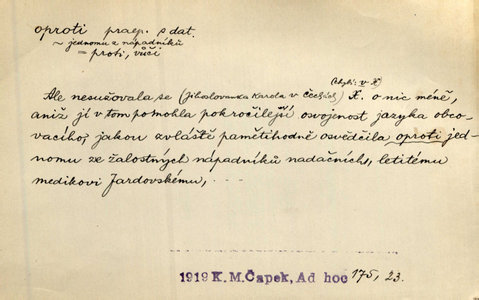 oproti praep. s dat.
~ jednomu z nápadníků
= proti, vůči
(chybí: v X)
Ale nesužovala se (Jihoslovanka Karola v Čechách) X. o nic méně,
aniž jí v tom pomohla pokročilejší osvojenost jazyka obco-
vacího, jakou zvláště pamětihodně osvědčila oproti jed-
nomu ze žalostných nápadníků nadačních, letitému
medikovi Jardovskému,
1919 K. M. Čapek, Ad hoc 175, 23.